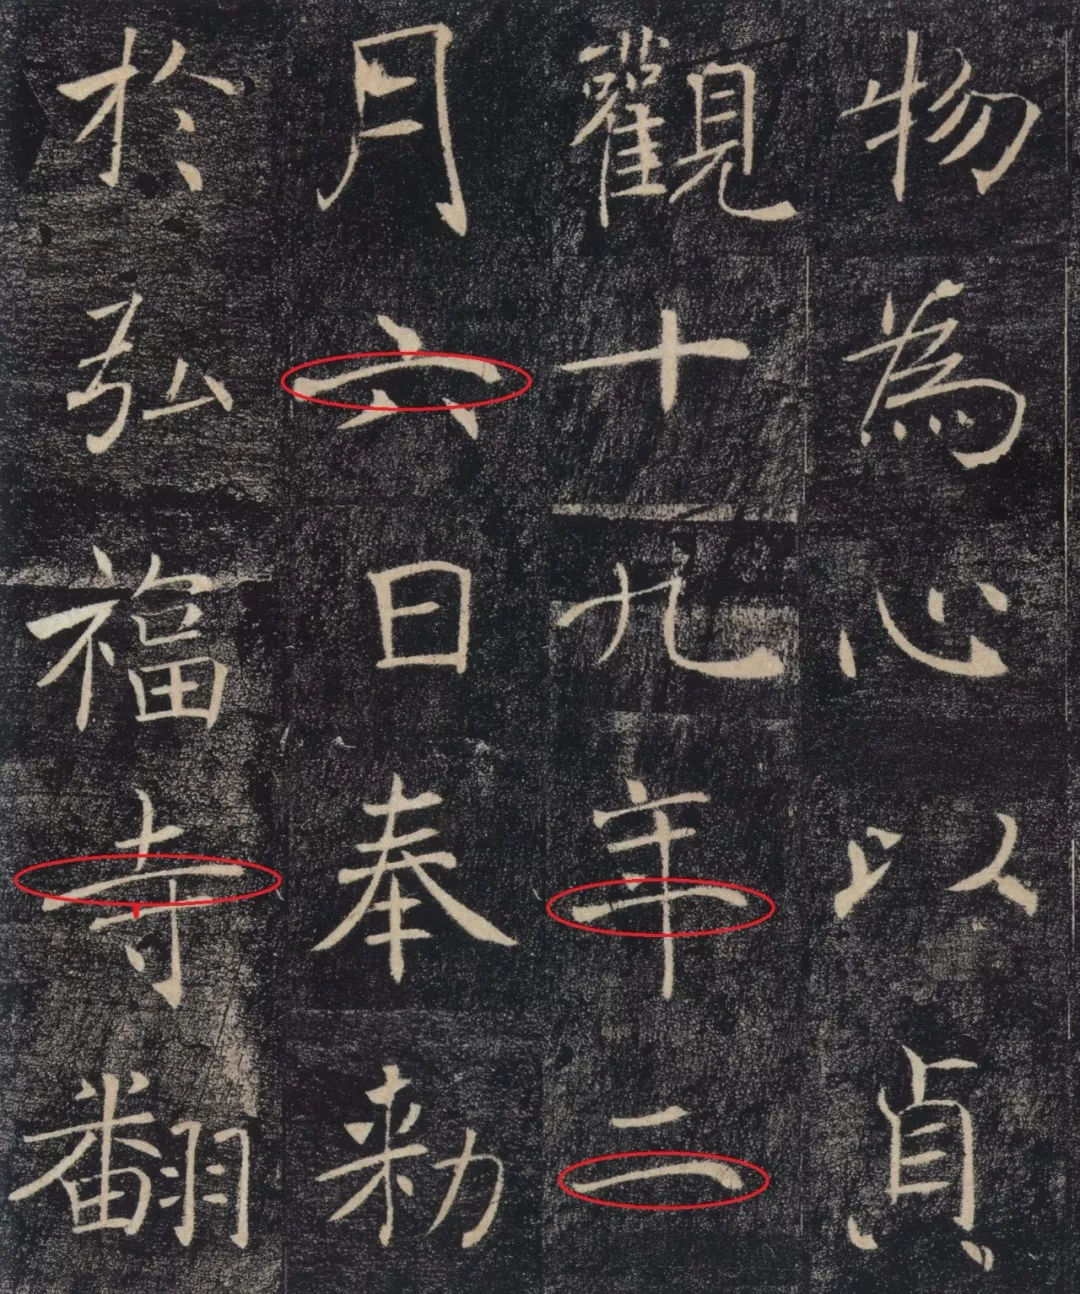 物為心以貞
觀十九年二
月六日奉勑
於弘福寺翻